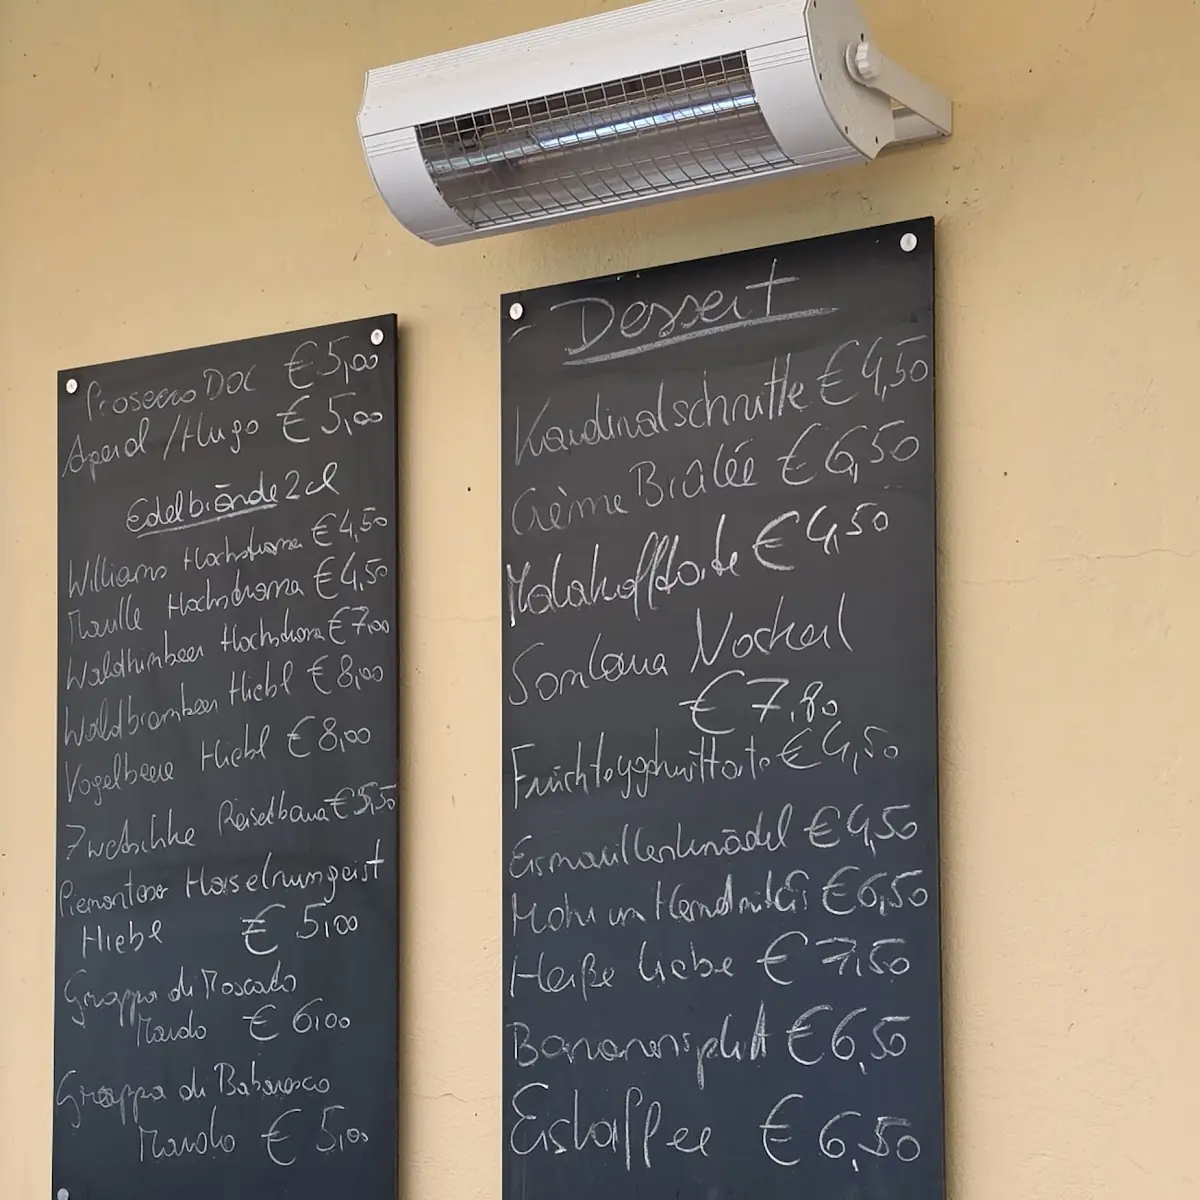 Prosecco DOC € 5,00
Aperol / Hugo € 5,00
Edelbrände 2 cl
Williams Hochstrasser € 4,50
Marille Hochstrasser € 4,50
Waldhimbeer € 7,00
Waldbrombeer Hiebl € 8,00
Vogelbeere Hiebl € 8,00
Zwetschke Reisetbauer €
Piemonteser Haselnussgeist
Hiebl € 5,00
Grappa di Moscato
€ 6,00
Grappa di Barbaresco
€ 5,00
Dessert
Kardinalschnitte € 4,50
Crème Brûlée € 6,50
Malakofftorte € 4,50
Nockerl
€ 7,80
Früchteyoghurttorte € 4,50
Eismarillenknödel € 4,50
Mohr im Hemd € 6,50
Heiße Liebe € 7,50
Bananensplit € 6,50
Eiskaffee € 6,50